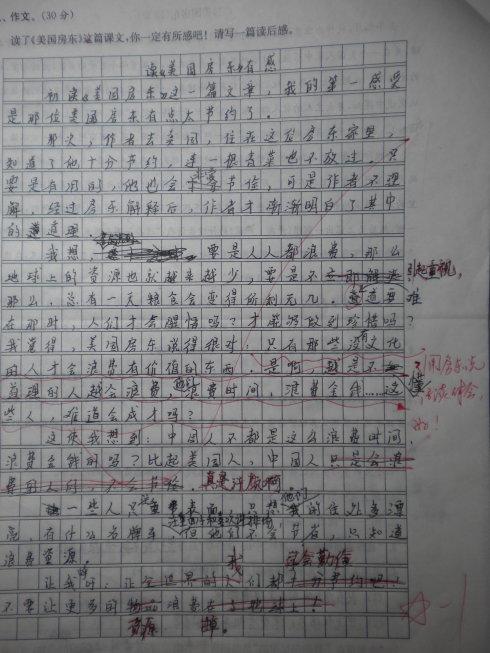 、作文。(30分)
读了《美国房东》这篇课文,你一定有所感吧!请写一篇读后感。
读《美国房东》有感
初读《美国房东》这一篇文章,我的第一感受
是那位美国房东有点太节约了。
那次,作者去美国,住在这位房东家里,
知道了他十分节约,连一根青菜也不放过,只
要是有用的,他也会非常节俭,可是作者不理
解,经过房东解释后,作者才渐渐明白了其中
的道理。
我想,要是人人都浪费,那么
地球上的资源也就越来越少,要是不引起重视,
那么,总有一天粮食会变得所剩无几。难道要
在那时,人们才会醒悟吗?才能够做到珍惜吗?
我觉得,美国房东说得很对,只有那些没文化
的人才会浪费有价值的东西。是啊,越是不懂
道理的人越会浪费,浪费时间,浪费金钱……这
些人,难道会成才吗?
用房东的话
谈体会,
好!
这使我想到:中国人不都是这么浪费时间,
浪费金钱的吗?比起美国人,中国人
真是汗颜啊
一些人只
亮,有什么名牌车,但他们不会节省,只知道
浪费资源。
让我们
学会勤俭
不要让更多的资源浪费掉。